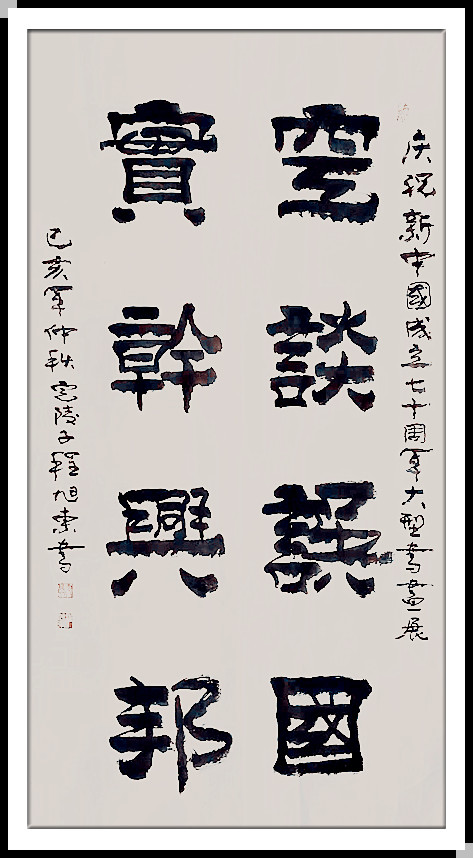 庆祝新中國成立七十周年大型書畫展
空談誤國
實幹興邦
己亥年仲秋宛陵子程旭東書